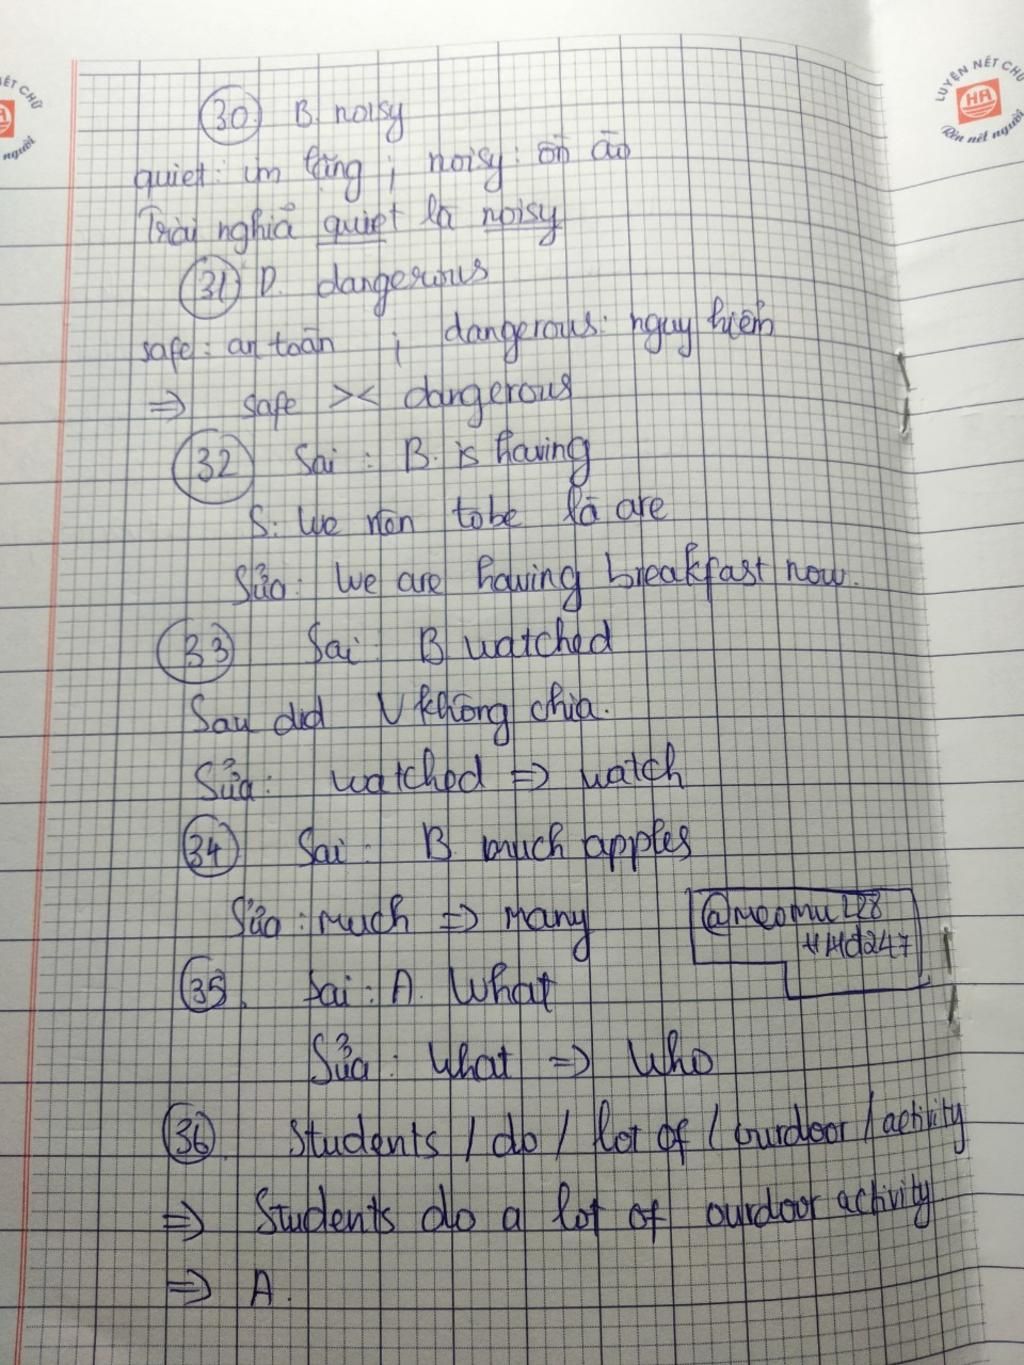 30 B. noisy
quiet: im lặng ; noisy: ồn ào
Trái nghĩa quiet là noisy
31 D. dangerous
safe: an toàn ; dangerous: nguy hiểm
=> safe >< dangerous
32 Sai : B. is having
S: We nên tobe là are
Sửa: We are having breakfast now.
33 Sai : B watched
Sau did V không chia.
Sửa: watched => watch
34 Sai : B. much apples
Sửa : much => many
@meomu228
#Hd247
35. Sai : A. What
Sửa : What => Who
36 Students / do / lot of / ourdoor / activity
=> Students do a lot of ourdoor activity
=> A.
LUYỆN NÉT CHỮ
HA
Rèn nết người
ÉT CHỮ
người